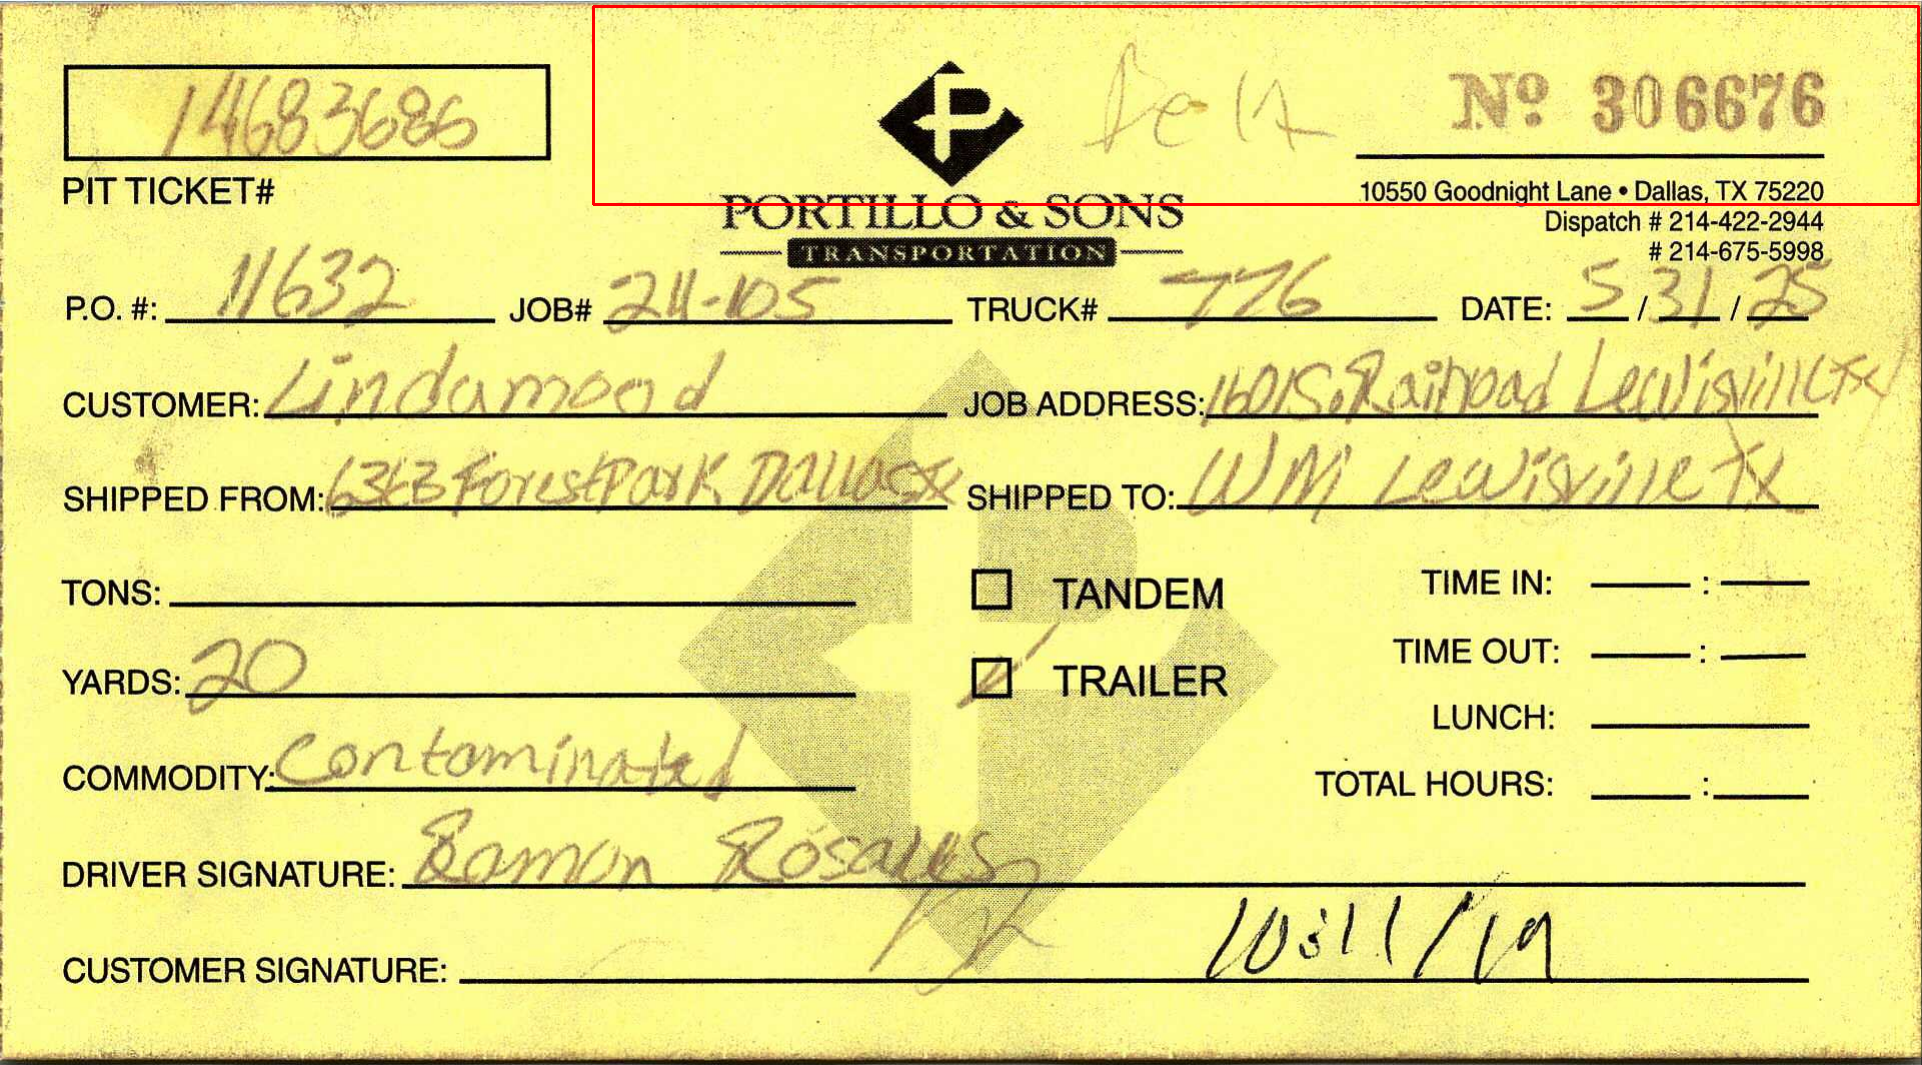 14683686
PIT TICKET#
PORTILLO & SONS
TRANSPORTATION
Nº 306676
10550 Goodnight Lane • Dallas, TX 75220
Dispatch # 214-422-2944
# 214-675-5998
P.O. #: 11632 JOB# 24-105 TRUCK# 776 DATE: 5/31/25
CUSTOMER: Lindamood JOB ADDRESS: 1601 S. Railroad Lewisville TX
SHIPPED FROM: Forest Park Dallas TX SHIPPED TO: WM Lewisville TX
TONS:
TANDEM
TIME IN: :
YARDS: 20
TRAILER
TIME OUT: :
LUNCH:
COMMODITY: Contaminated
TOTAL HOURS: :
DRIVER SIGNATURE: Ramon Rosales
CUSTOMER SIGNATURE: